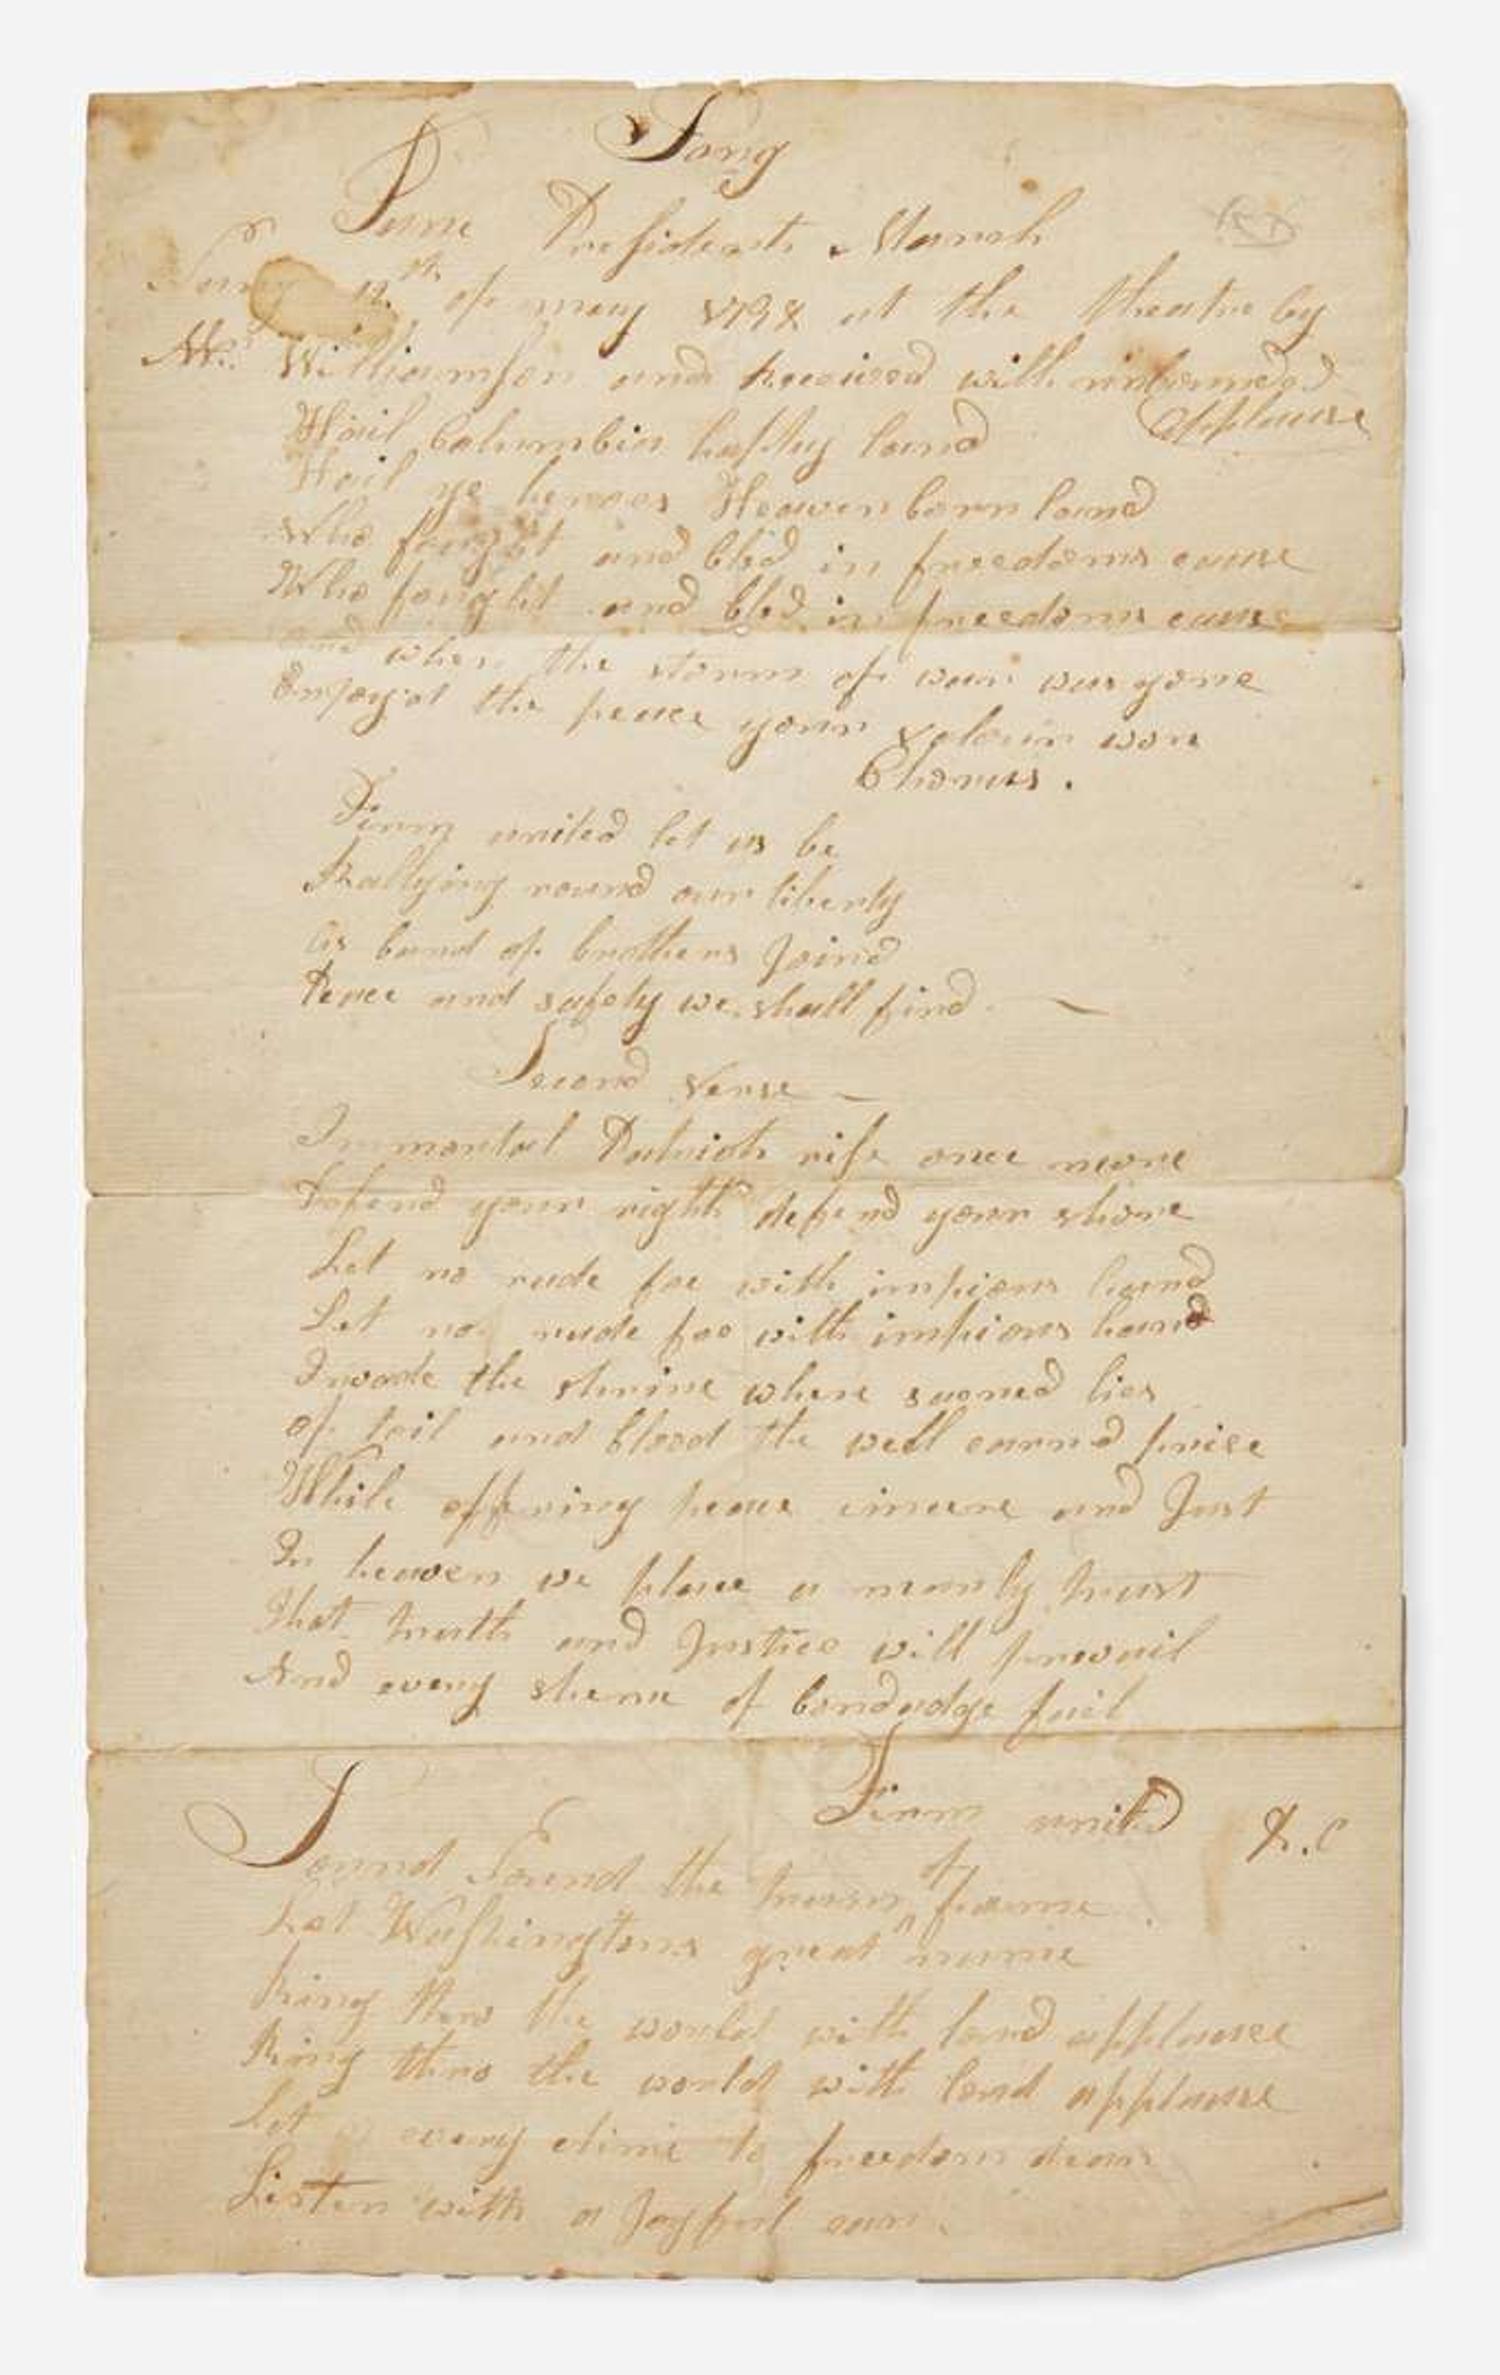 Song
Tune Presidents March
Sung 12th of may 1798 at the theatre by
Mr. Williamson and Received with unbounded
Applause
Hail Columbia happy land
Hail ye heroes Heaven born band
Who fought and bled in freedoms cause
Who fought and bled in freedoms cause
and when the storm of war was gone
Enjoy'd the peace your valour won
Chorus.
Firm united let us be
Rallying round our liberty
As band of brothers Joind
Peace and safety we shall find
Second verse
Immortal Patriots rise once more
Defend your rights defend your shore
Let no rude foe with impious hand
Let no rude foe with impious hand
Invade the shrine where sacred lies
of toil and blood the well earnd prise
While offering peace cincere and Just
In heaven we place a manly trust
That truth and Justice will prevail
And every sheme of bondadge fail
Firm unitd &.C
Sound Sound the trum of fame
Let Washingtons great name
Ring thro the world with loud applause
Ring thro the world with loud applause
Let every clime to freedom dear
Listen with a Joyful ear.